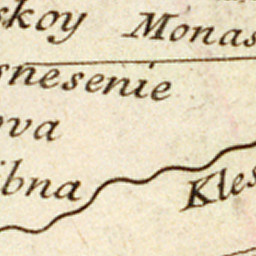 skoy Monas
snesenie
ova
ibna
Kles